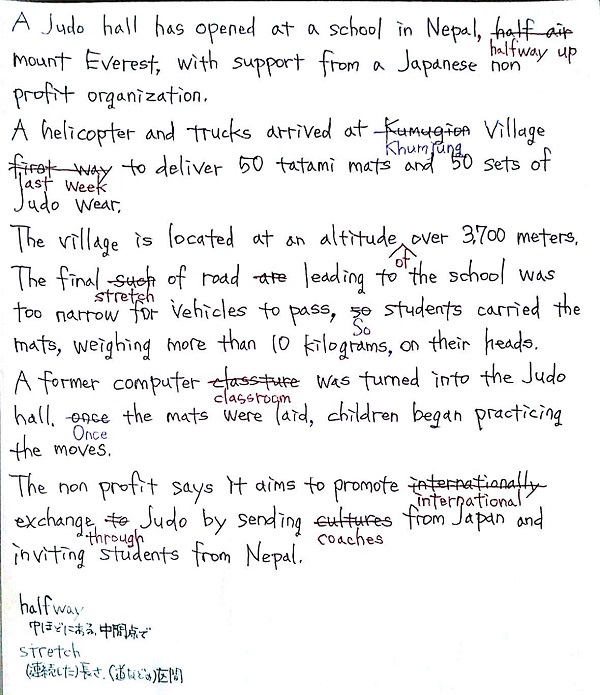 A Judo hall has opened at a school in Nepal, half air
halfway up
mount Everest, with support from a Japanese non
profit organization.
A helicopter and trucks arrived at Kumugion Village
Khumjung
first way to deliver 50 tatami mats and 50 sets of
last week
Judo wear.
The village is located at an altitude over 3,700 meters.
of
The final such of road are leading to the school was
stretch
too narrow for vehicles to pass, so students carried the
So
mats, weighing more than 10 kilograms, on their heads.
A former computer classture was turned into the Judo
classroom
hall. once the mats were laid, children began practicing
Once
the moves.
The non profit says it aims to promote internationally
international
exchange to Judo by sending cultures from Japan and
through
coaches
inviting students from Nepal.
halfway
中ほどにある, 中間点で
stretch
(連続した)長さ, (道などの)区間